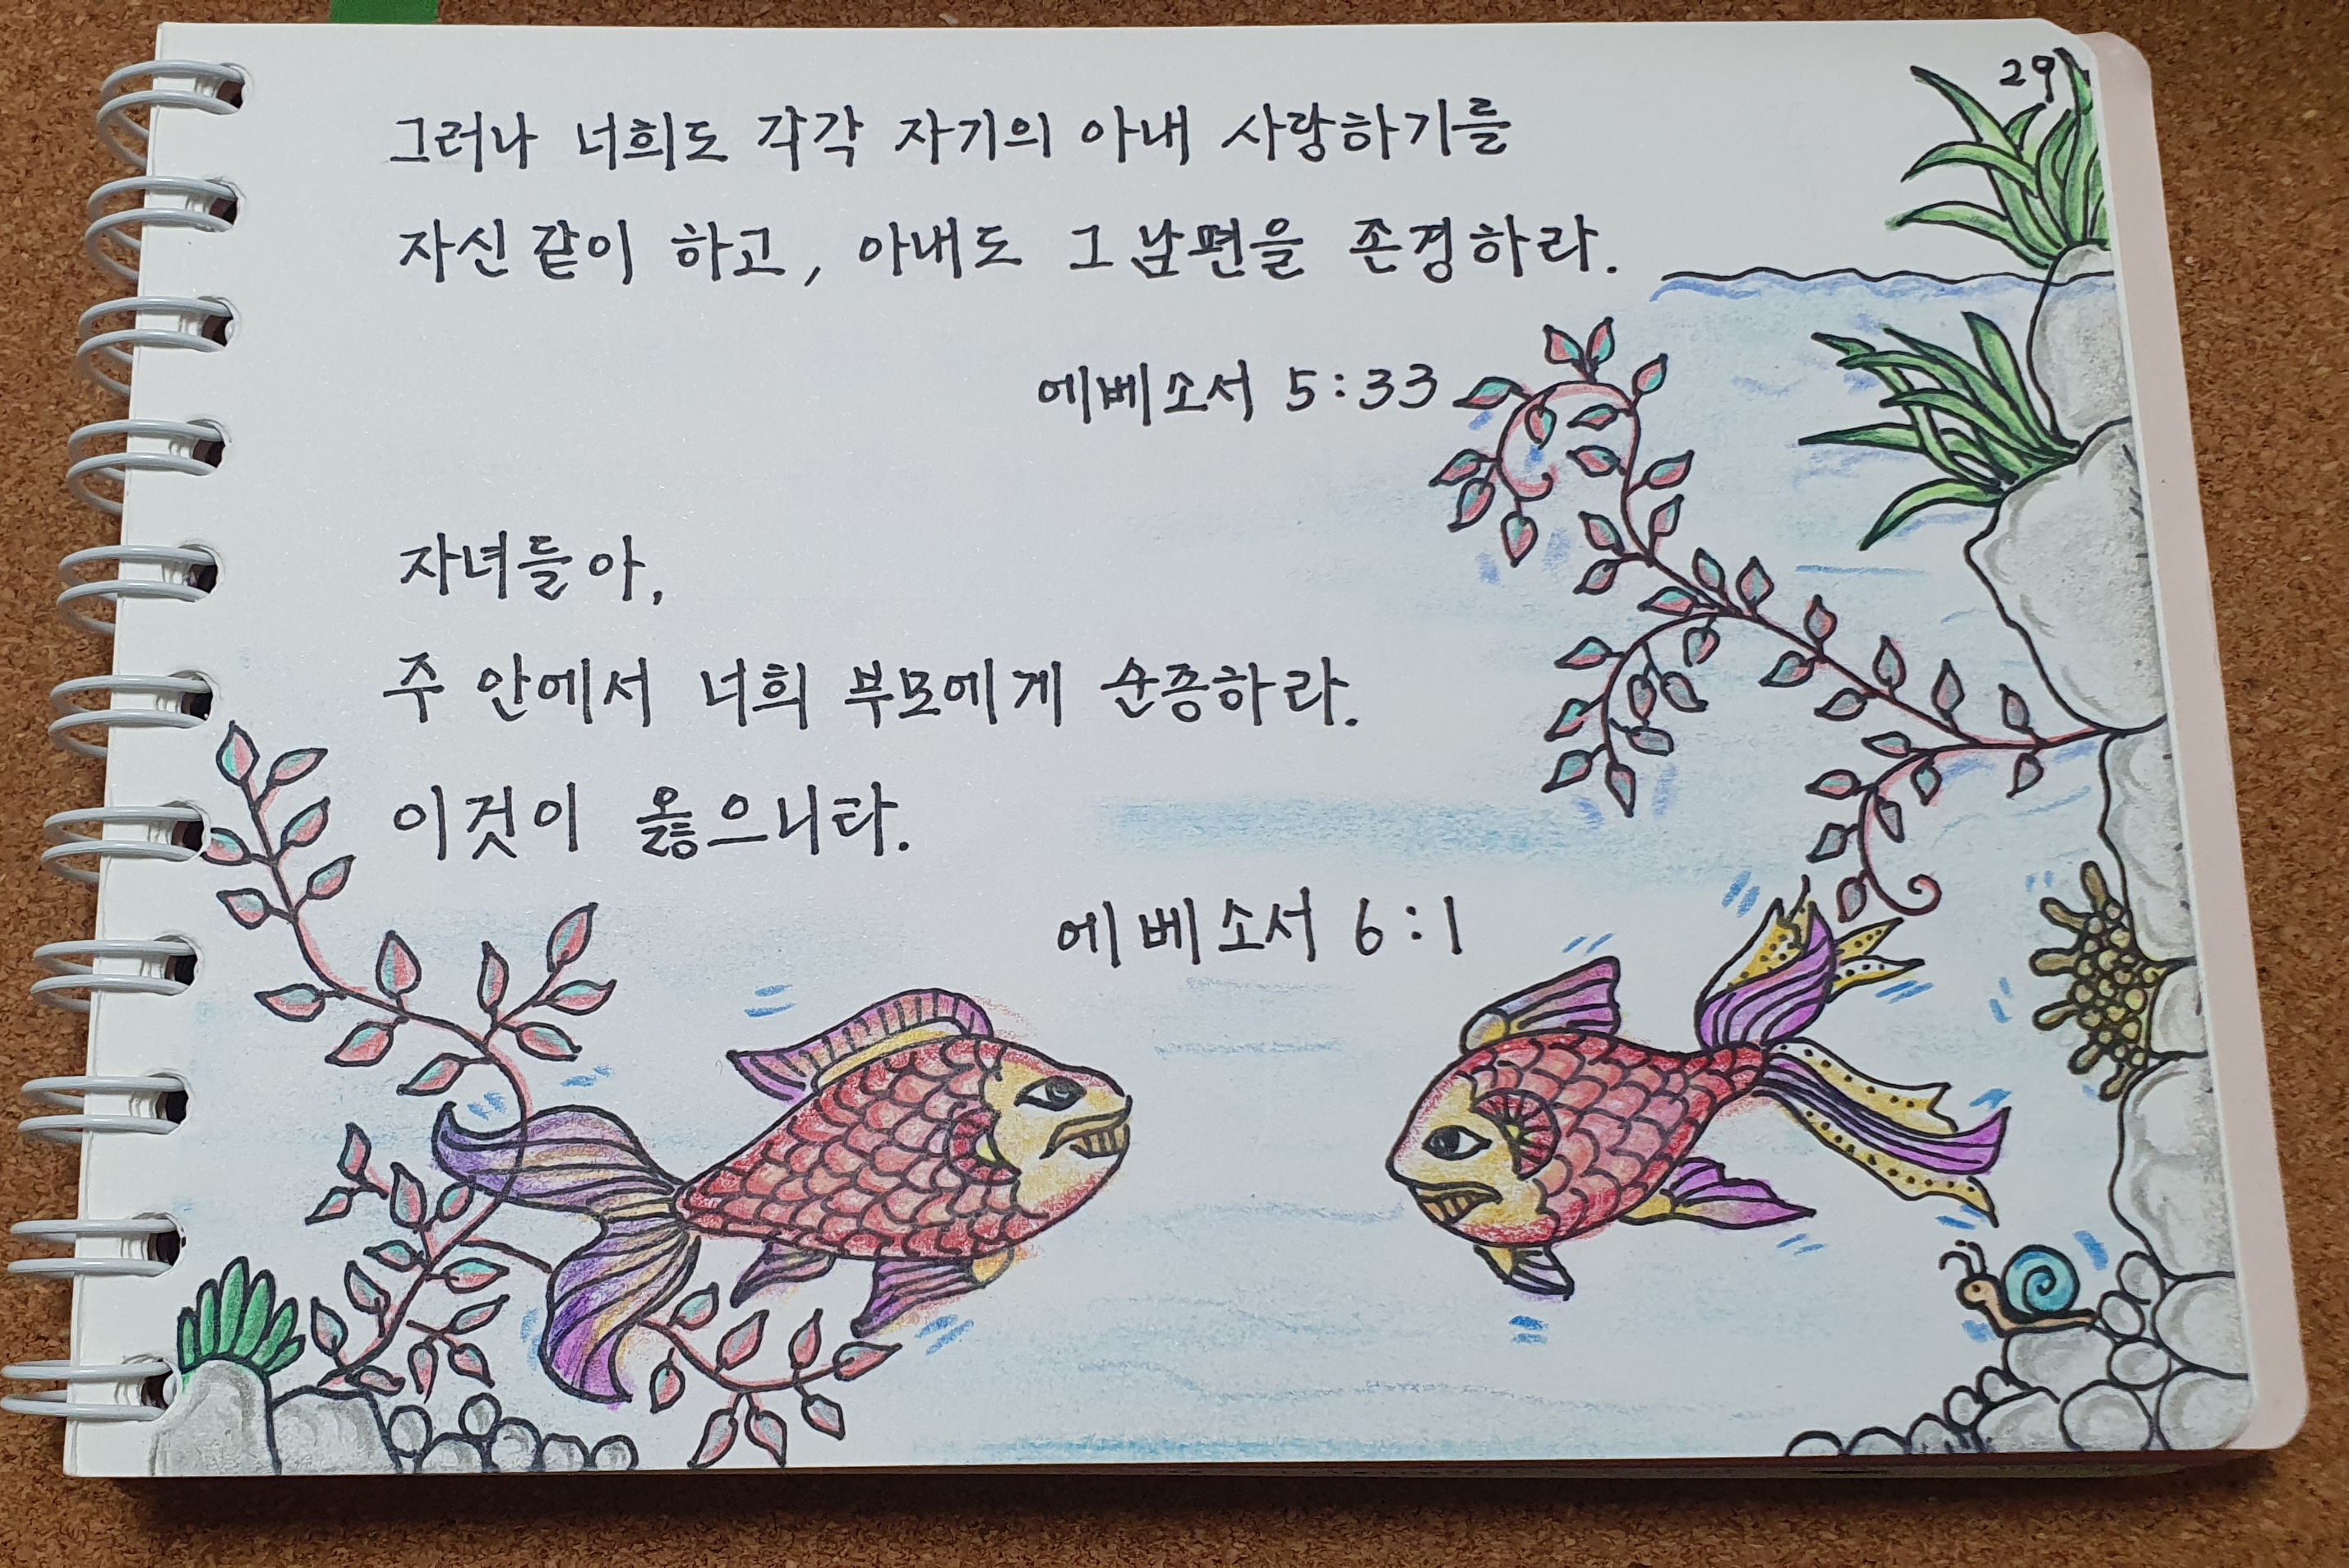 29
그러나 너희도 각각 자기의 아내 사랑하기를
자신 같이 하고, 아내도 그 남편을 존경하라.
에베소서 5:33
자녀들아,
주 안에서 너희 부모에게 순종하라.
이것이 옳으니라.
에베소서 6:1